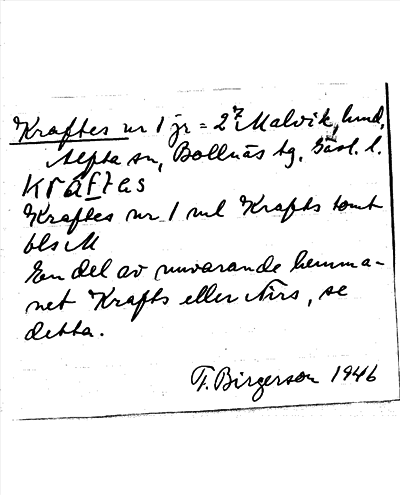 Kraftes nr 1 jr = 2⁷ Malvik, hmd,
Alfta sn, Bollnäs tg, Gävl. l.
kraftes
Kraftes nr 1 ml Krafts tomt
bls M
En del av nuvarande hemma-
net Krafts eller Nirs, se
detta.
T. Birgerson 1946